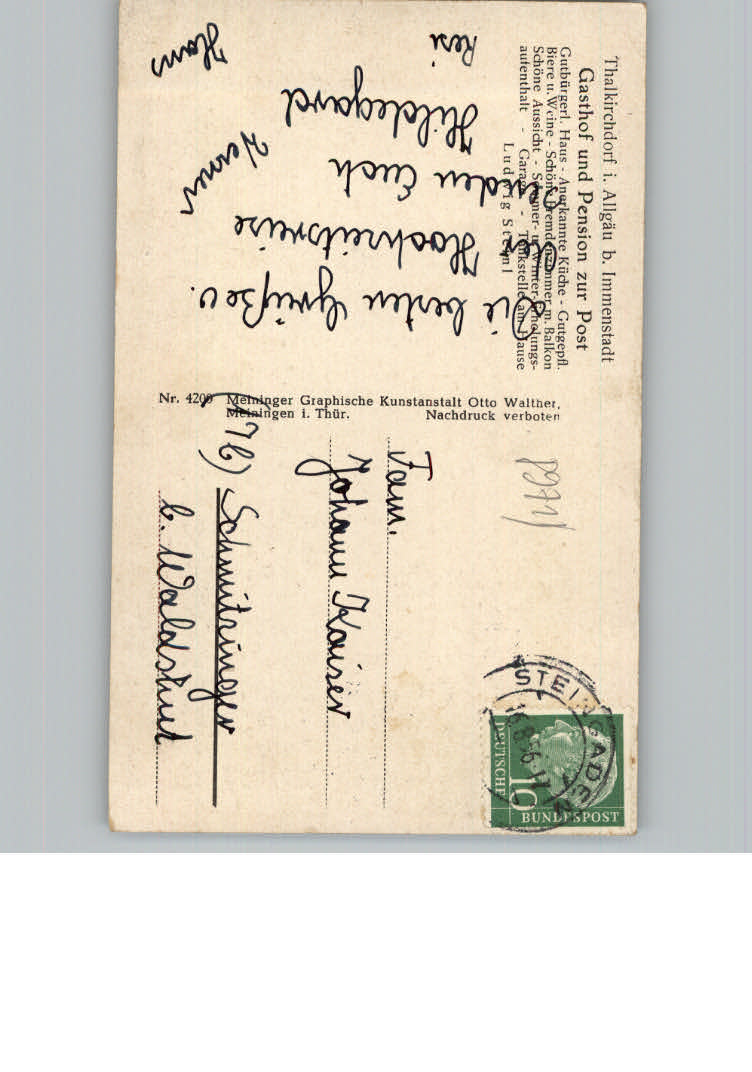 Thalkirchdorf i. Allgäu b. Immenstadt
Gasthof und Pension zur Post
Gutbürgerl. Haus - Anerkannte Küche - Gutgepfl.
Biere u. Weine - Schöne Fremdenzimmer m. Balkon
Schöne Aussicht - Sommer- u. Winter-Erholungs-
aufenthalt - Garage - Tankstelle am Hause
Ludwig
Die besten Grüße v.
der Hochzeitsreise
senden Euch
Werner
Hildegard
Resi
Hans
Nr. 4209 Meininger Graphische Kunstanstalt Otto Walther,
Meiningen i. Thür. Nachdruck verboten
Fam.
Johann Kaiser
Schmitzinger
b. Waldshut
STEINGADEN
16.8.56.17
DEUTSCHE
10
BUNDESPOST